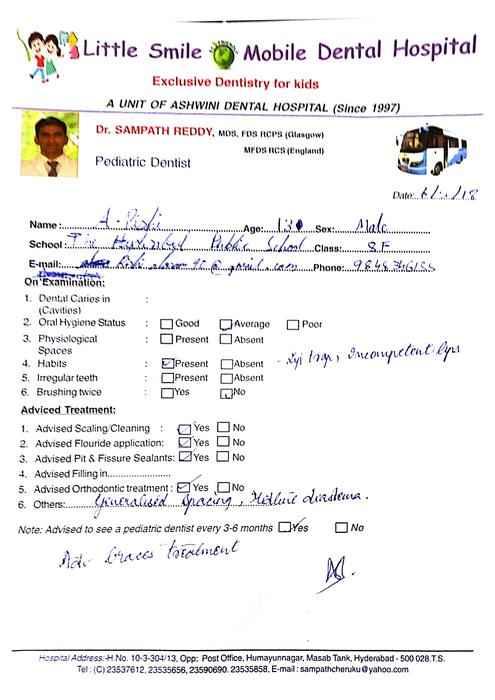 Little Smile Mobile Dental Hospital
Exclusive Dentistry for kids
A UNIT OF ASHWINI DENTAL HOSPITAL (Since 1997)
Dr. SAMPATH REDDY, MDS, FDS RCPS (Glasgow)
MFDS RCS (England)
Pediatric Dentist
Date:
Name: A. Rishi Age: 13 Sex: Male
School: The Hyderabad Public School Class: 8 F
E-mail: @gmail.com Phone:
On Examination:
1. Dental Caries in :
(Cavities)
2. Oral Hygiene Status : Good Average Poor
3. Physiological : Present Absent
Spaces
4. Habits : Present Absent - Lip trap, Incompetent lips
5. Irregular teeth : Present Absent
6. Brushing twice : Yes No
Adviced Treatment:
1. Advised Scaling/Cleaning : Yes No
2. Advised Flouride application: Yes No
3. Advised Pit & Fissure Sealants: Yes No
4. Advised Filling in
5. Advised Orthodontic treatment : Yes No
6. Others: Generalised Spacing, Midline diastema.
Note: Advised to see a pediatric dentist every 3-6 months Yes No
Adv braces treatment
Hospital Address:-H.No. 10-3-304/13, Opp: Post Office, Humayunnagar, Masab Tank, Hyderabad - 500 028.T.S.
Tel : (C) 23537612, 23535656, 23590690. 23535858, E-mail : sampathcheruku@yahoo.com